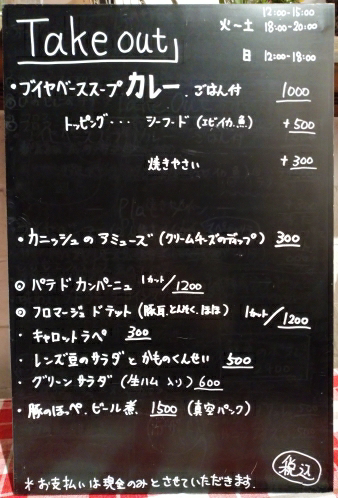 Take out
12:00-15:00
火~土 18:00-20:00
日 12:00-18:00
・ブイヤベーススープカレー. ごはん付 1000
トッピング・・・ シーフード (エビイカ.魚) +500
焼きやさい +300
・カニッシュのアミューズ(クリームチーズのディップ) 300
◎ パテドカンパーニュ 1カット/1200
◎ フロマージュ ド テット (豚耳.とんそく.ほほ) 1カット/1200
・キャロットラペ 300
・レンズ豆のサラダとかものくんせい 500
・グリーンサラダ (生ハム入り) 600
・豚のほっぺ.ビール煮 1500 (真空パック)
税込
*お支払いは現金のみとさせていただきます.